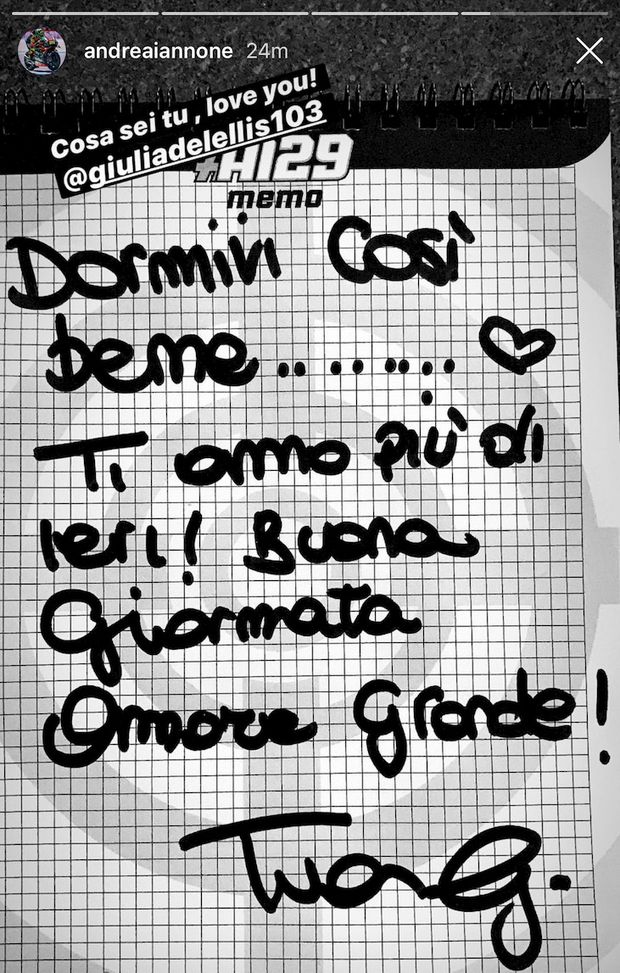 andreaiannone 24m
Cosa sei tu , love you!
@giuliadelellis103
+AI29
memo
Dormivi Così
bene............ ♡
Ti amo più di
ieri! Buona
Giornata
Amore Grande!
Tua G.